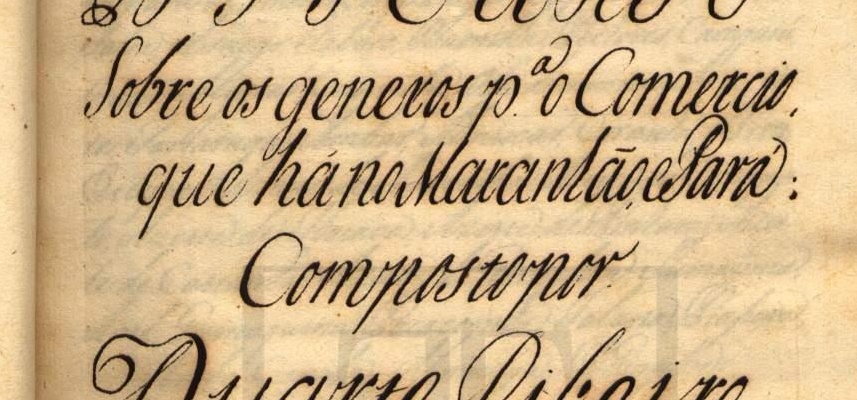 Sobre os generos p.ª o Comercio,
que há no Maranhão, e Pará:
Composto por
Duarte Ribeiro